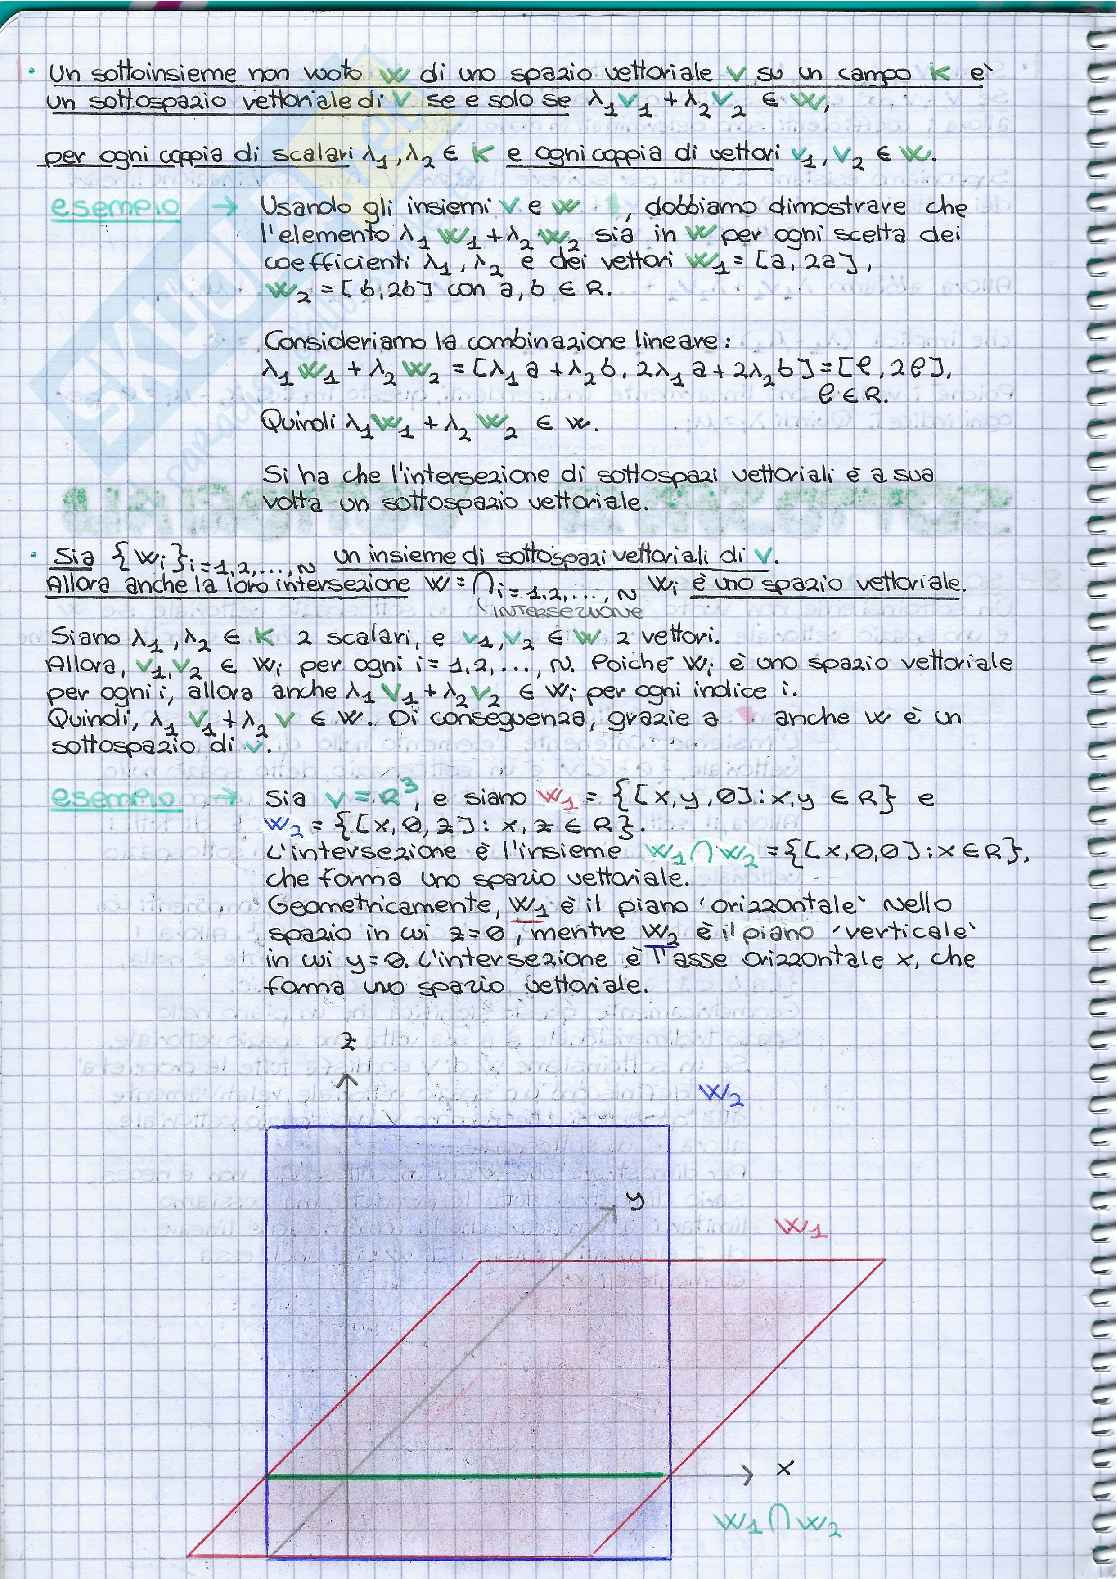 · Un sottoinsieme non vuoto W di uno spazio vettoriale V su un campo K è
un sottospazio vettoriale di V se e solo se λ₁V₁ + λ₂V₂ ∈ W,
per ogni coppia di scalari λ₁, λ₂ ∈ K e ogni coppia di vettori V₁, V₂ ∈ W.
esempio → Usando gli insiemi V e W , dobbiamo dimostrare che
l'elemento λ₁W₁+λ₂W₂ sia in W per ogni scelta dei
coefficienti λ₁, λ₂ e dei vettori W₁ = [a, 2a],
W₂ = [b, 2b] con a, b ∈ R.
Consideriamo la combinazione lineare:
λ₁W₁ + λ₂W₂ = [λ₁a + λ₂b, 2λ₁a + 2λ₂b] = [e, 2e],
e ∈ R.
Quindi λ₁W₁ + λ₂W₂ ∈ W.
Si ha che l'intersezione di sottospazi vettoriali è a sua
volta un sottospazio vettoriale.
· Sia {Wi}i=1,2,...,N un insieme di sottospazi vettoriali di V.
Allora anche la loro intersezione W = ⋂i=1,2,...,N Wi è uno spazio vettoriale.
INTERSEZIONE
Siano λ₁, λ₂ ∈ K 2 scalari, e V₁, V₂ ∈ W 2 vettori.
Allora, V₁, V₂ ∈ Wi per ogni i = 1, 2, ..., N. Poiché Wi è uno spazio vettoriale
per ogni i, allora anche λ₁V₁ + λ₂V₂ ∈ Wi per ogni indice i.
Quindi, λ₁V₁ + λ₂V ∈ W. Di conseguenza, grazie a anche W è un
sottospazio di V.
esempio → Sia V = R³, e siano W₁ = {[x, y, 0] : x, y ∈ R} e
W₂ = {[x, 0, z] : x, z ∈ R}.
L'intersezione è l'insieme W₁ ∩ W₂ = {[x, 0, 0] : x ∈ R},
che forma uno spazio vettoriale.
Geometricamente, W₁ è il piano 'orizzontale' nello
spazio in cui z = 0, mentre W₂ è il piano 'verticale'
in cui y = 0. L'intersezione è l'asse orizzontale x, che
forma uno spazio vettoriale.
z
W₂
y
W₁
x
W₁ ∩ W₂